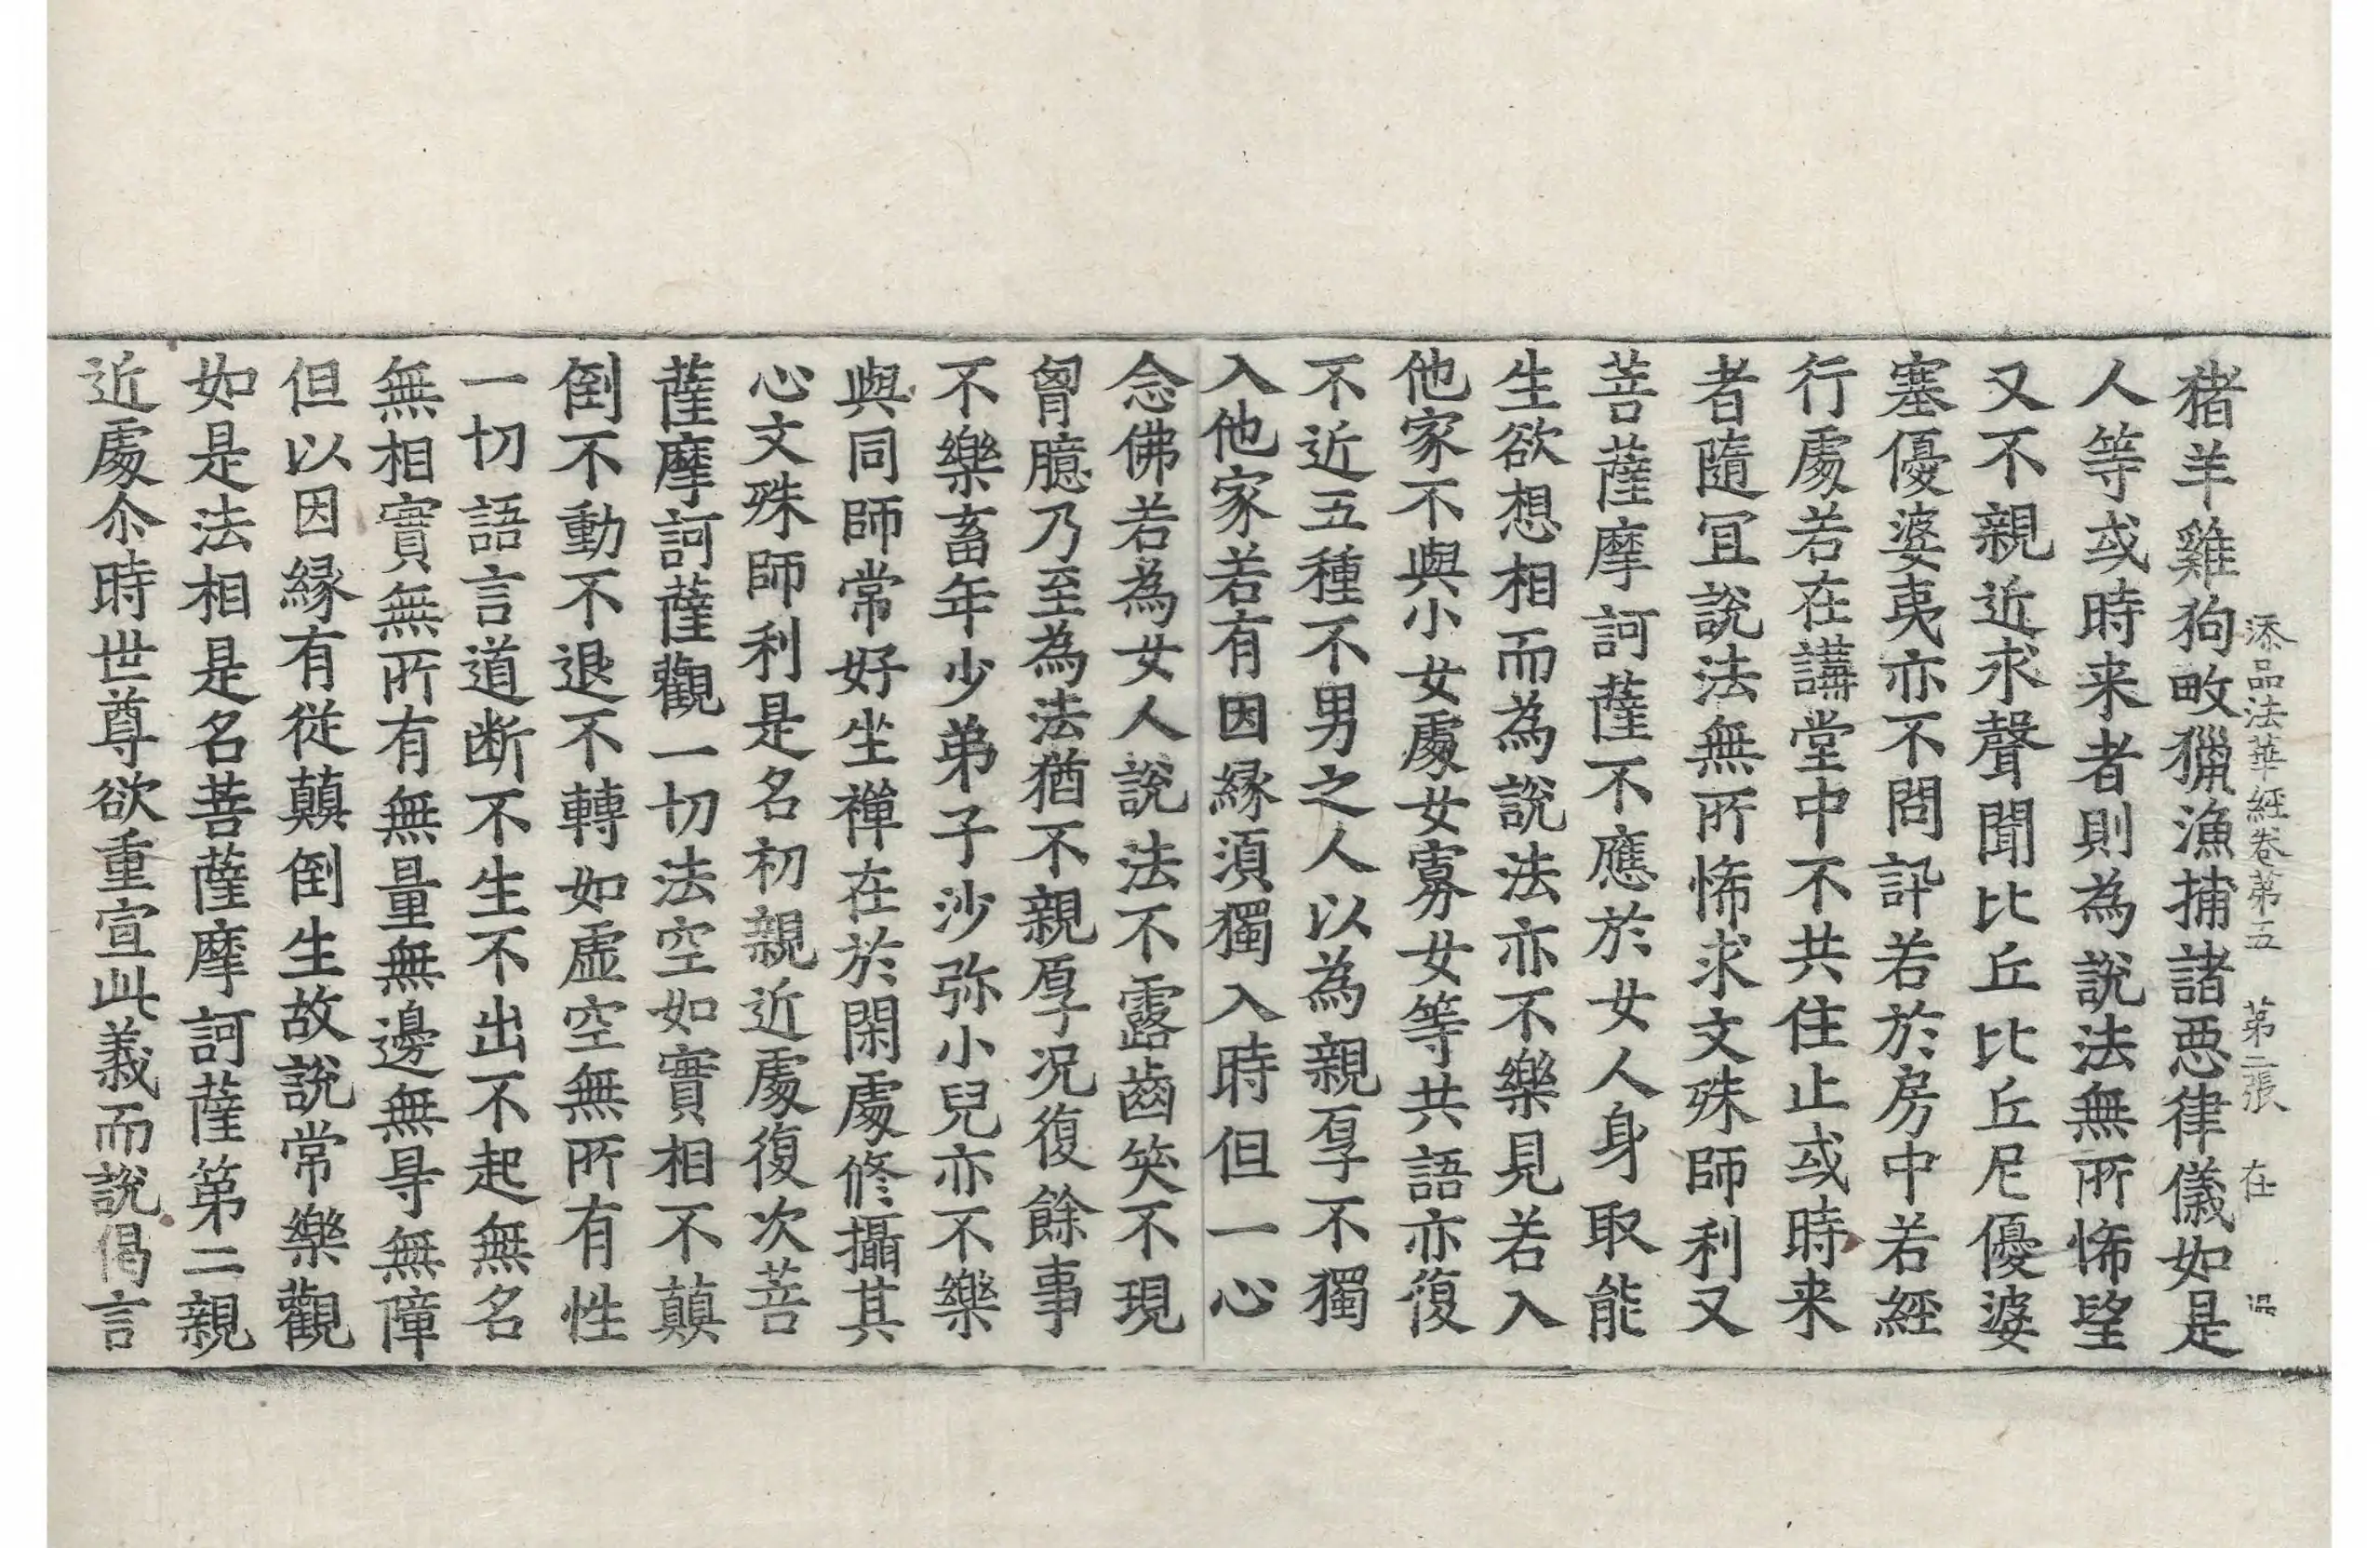 添品法華經卷第五　第二張　在
猪羊雞狗畋獵漁捕諸惡律儀如是
人等或時来者則為說法無所悕望
又不親近求聲聞比丘比丘尼優婆
塞優婆夷亦不問訊若於房中若經
行處若在講堂中不共住止或時来
者隨冝說法無所悕求文殊師利又
菩薩摩訶薩不應於女人身取能
生欲想相而為說法亦不樂見若入
他家不與小女處女寡女等共語亦復
不近五種不男之人以為親厚不獨
入他家若有因縁須獨入時但一心
念佛若為女人說法不露齒笑不現
胷臆乃至為法猶不親厚况復餘事
不樂畜年少弟子沙弥小兒亦不樂
與同師常好坐禪在於閑處修攝其
心文殊師利是名初親近處復次菩
薩摩訶薩觀一切法空如實相不顛
倒不動不退不轉如虛空無所有性
一切語言道断不生不出不起無名
無相實無所有無量無邊無㝵無障
但以因縁有従顛倒生故說常樂觀
如是法相是名菩薩摩訶薩第二親
近處尒時世尊欲重宣此義而說偈言